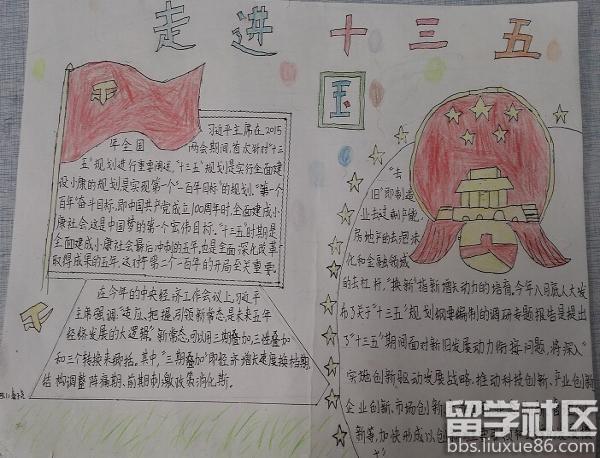 走进十三五
国
习近平主席在2015
年全国两会期间,首次对"十三
五"规划进行重要阐述,"十三五"规划是实行全面建
设小康的规划是实现第一个"一百年目标"的规划。"第一个
百年"奋斗目标,即中国共产党成立100周年时,全面建成小
康社会,这是中国梦的第一个宏伟目标。"十三五"时期是
全面建成小康社会最后冲刺的五年,也是全面深化改革
取得成果的五年,这对于第二个一百年的开局至关重要。
在今年的中央经济工作会议上,习近平
主席强调,"适应、把握、引领新常态是未来五年
经济发展的大逻辑"新常态,可以用三期叠加,三性叠加
和三个转换来概括。其中,"三期叠加"即经济增长速度换档期
结构调整阵痛期、前期刺激政策消化期。
"去
旧"即制造
业去过剩产能,
房地产的去泡沫
化和金融领域
的去杠杆,"换新"指新增长动力的培育。今年八月底人大发
布了关于"十三五"规划纲要编制的调研专题报告是提出
了"十三五"期间面对新旧发展动力衔接问题,将深入
实施创新驱动发展战略,推动科技创新、产业创新
企业创新、市场创新
新等,加快形成以创
留学社区
bbs.liuxue86.com